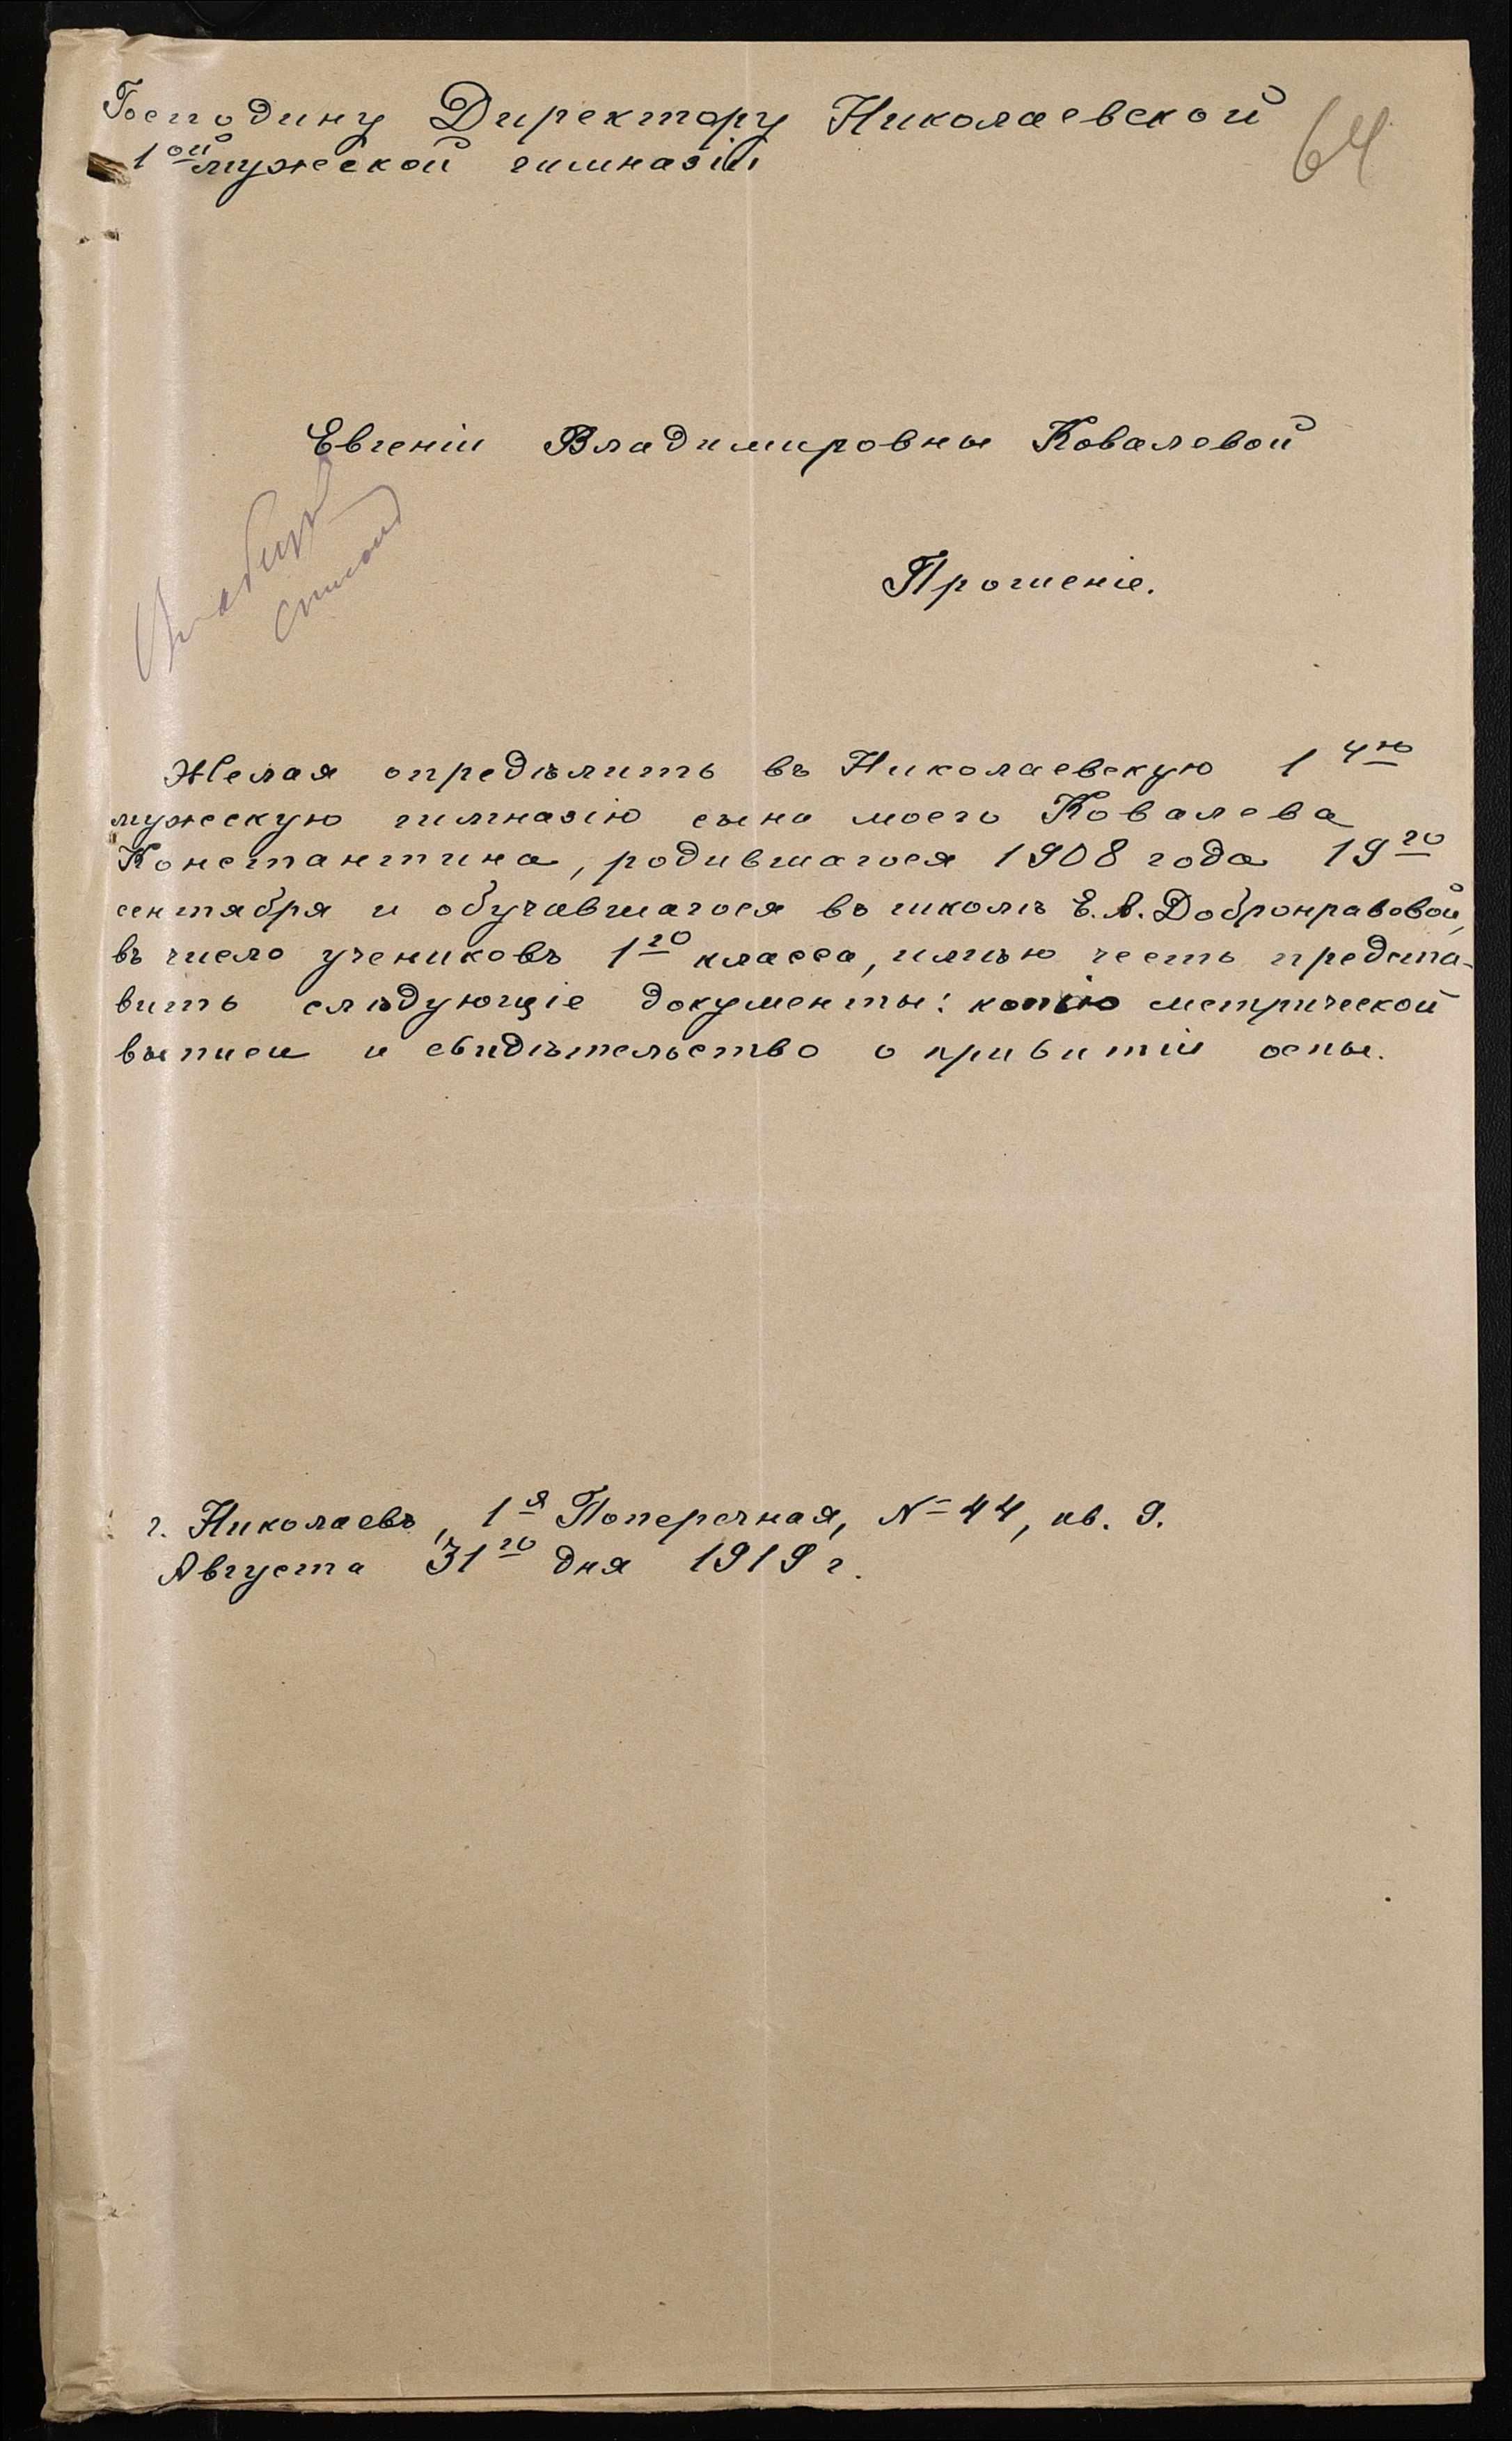 Господину Директору Николаевской
1ой мужеской гимназіи
64
Евгеніи Владимировны Ковалевой
Прошеніе.
Желая опредѣлить въ Николаевскую 1ую
мужескую гимназію сына моего Ковалева
Константина, родившагося 1908 года 19го
сентября и обучавшагося въ школѣ Е. А. Добронравовой,
въ число учениковъ 1го класса, имѣю честь предста-
вить слѣдующіе документы: копію метрической
выписи и свидѣтельство о привитіи оспы.
г. Николаевъ, 1я Поперечная, № 44, кв. 9.
Августа 31го дня 1919 г.